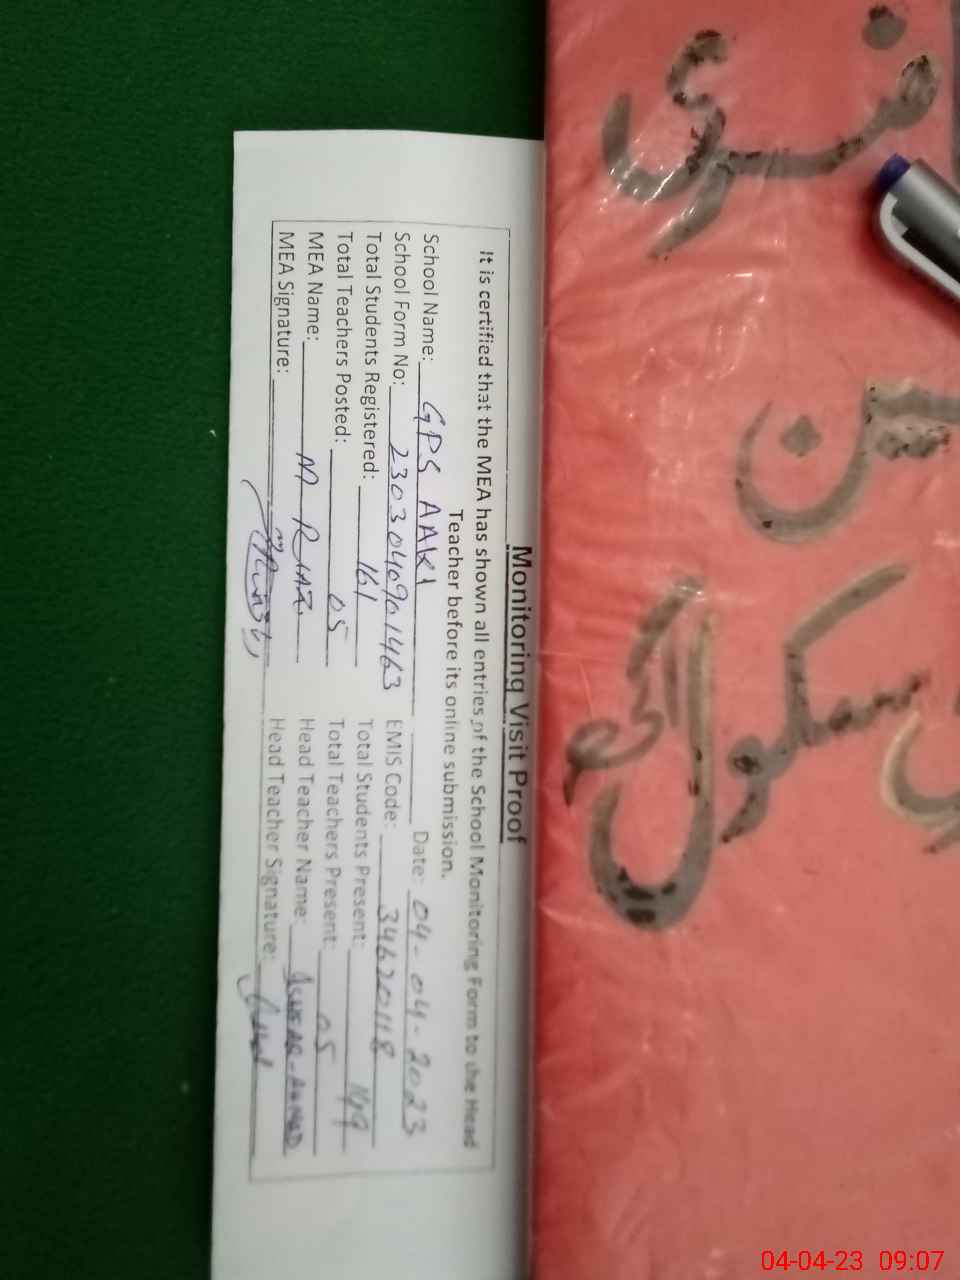 Monitoring Visit Proof
It is certified that the MEA has shown all entries of the School Monitoring Form to the Head
Teacher before its online submission.
School Name: GPS AAKI Date: 04-04-2023
School Form No: 2303040901463 EMIS Code: 34620118
Total Students Registered: 161 Total Students Present: 149
Total Teachers Posted: 05 Total Teachers Present: 05
MEA Name: M RIAZ Head Teacher Name: AHMAD
MEA Signature: Head Teacher Signature:
سکول آکی
04-04-23 09:07